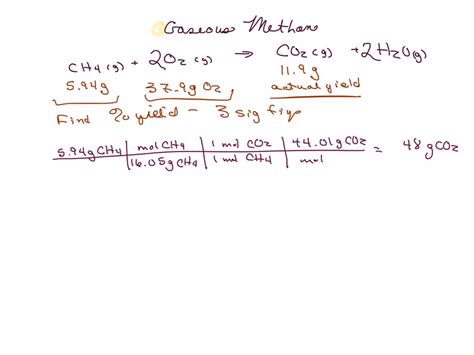 Gaseous Methane
CH4(g) + 2O2(g) → CO2(g) + 2H2O(g)
5.94g 37.9g O2 11.9g
actual yield
Find % yield - 3 sig figs
5.94g CH4 | mol CH4 | 1 mol CO2 | 44.01g CO2 = 48 g CO2
16.05g CH4 | 1 mol CH4 | mol